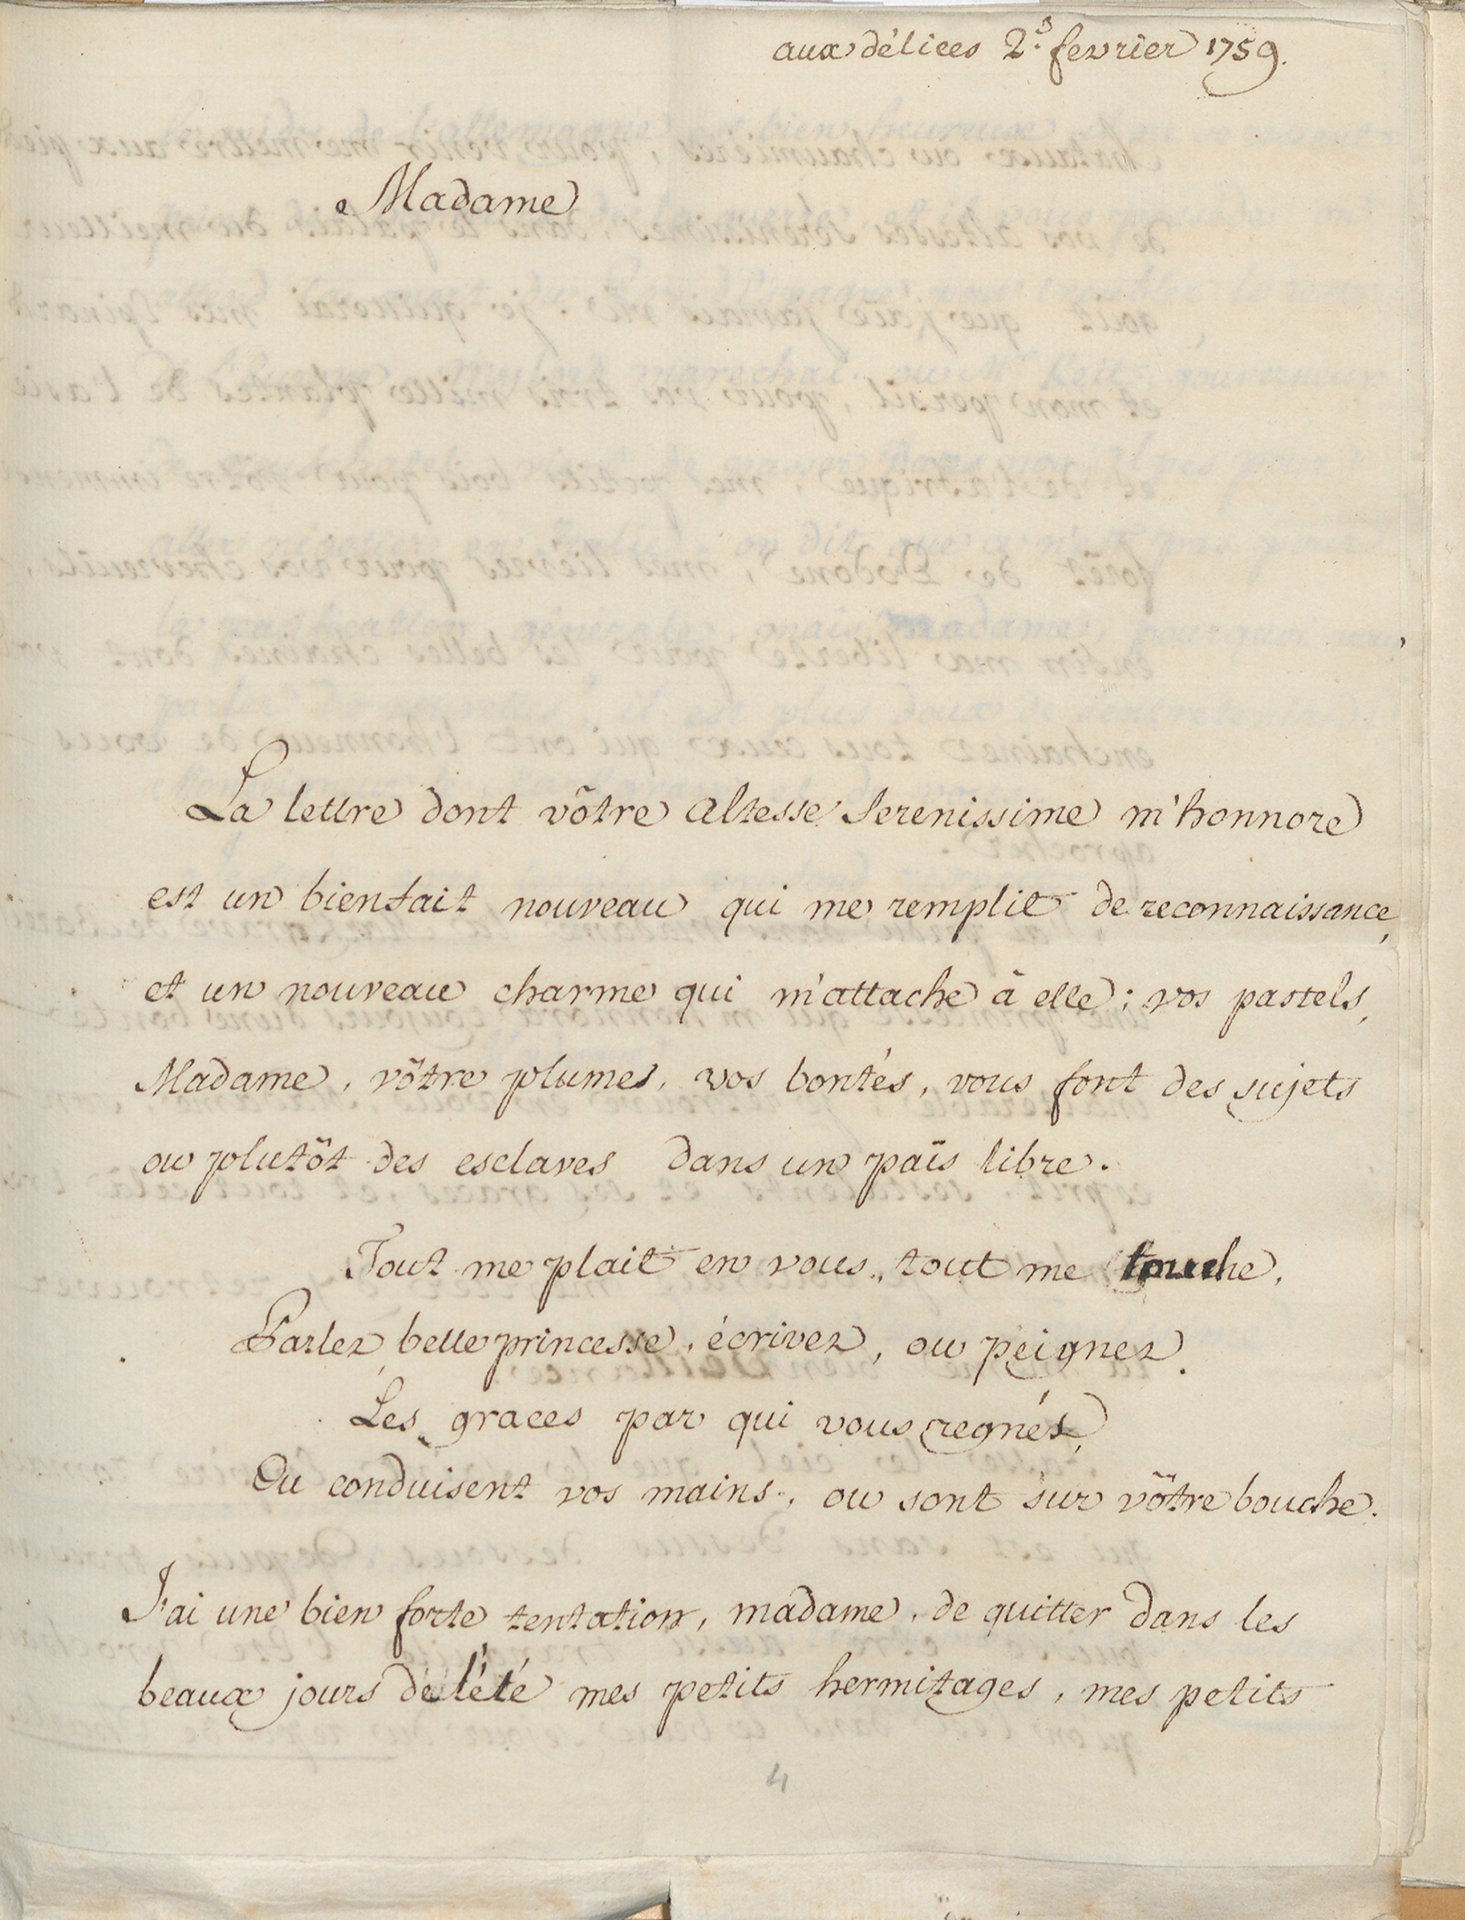 aux délices 2.^3 fevrier 1759.
Madame
La lettre dont vôtre Altesse Serenissime m'honnore
est un bienfait nouveau qui me remplit de reconnaissance,
et un nouveau charme qui m'attache à elle; vos pastels,
Madame, vôtre plume, vos bontés, vous font des sujets
ou plutôt des esclaves dans un païs libre.
Tout me plait en vous, tout me touche,
Parlez, belle princesse, écrivez, ou peignez.
Les graces par qui vous regnés,
Ou conduisent vos mains, ou sont sur vôtre bouche.
J'ai une bien forte tentation, madame, de quitter dans les
beaux jours de l'été mes petits hermitages, mes petits
4